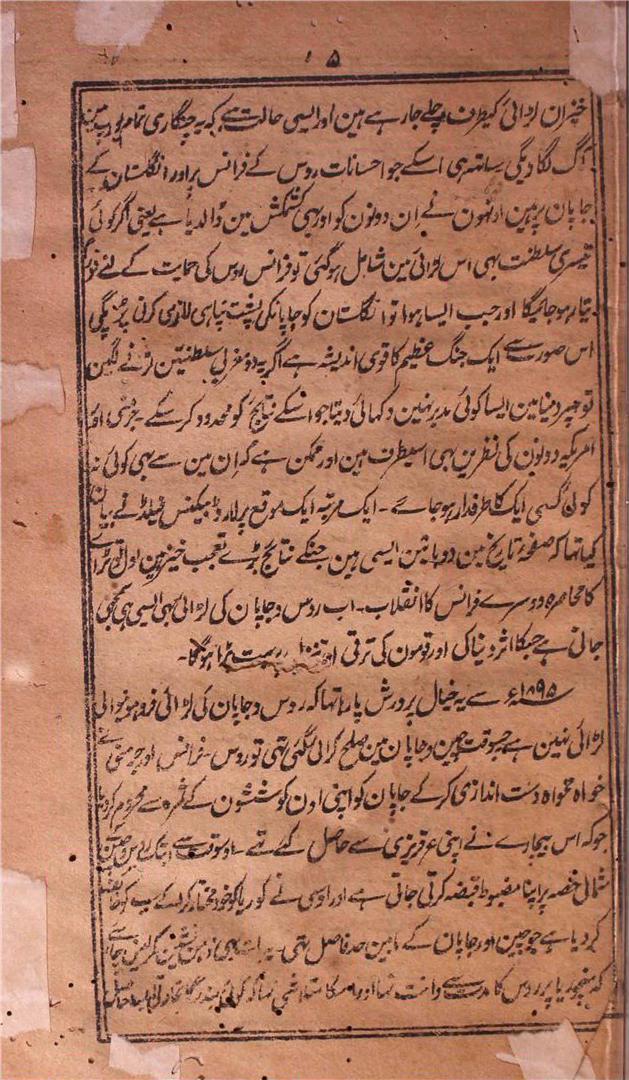 ۱۵
خیزان لڑائی کیطرف چلے جارہے ہین اور ایسی حالت ہے کہ یہ چنگاری تمام یورپ مین
آگ لگا دیگی ساتھ ہی اسکے جو احسانات روس کے فرانس پر اور انگلستان کے
جاپان پر ہین اونہون نے اِن دونون کو اور بہی کشمکش مین ڈالدیا ہے یعنی اگر کوئی
تیسری سلطنت بہی اس لڑائی مین شامل ہو گئی تو فرانس روس کی حمایت کے لئے فوراً
تیار ہو جائیگا اور جب ایسا ہوا تو انگلستان کو جاپانکی پشت پناہی لازمی کرنی پڑیگی
اس صورت سے ایک جنگ عظیم کا قوی اندیشہ ہے اگر یہ دو مغربی سلطنتین لڑنے لگین
تو پہر دنیا مین ایسا کوئی مدبر نہین دکہائی دیتا جو اسکے نتائج کو محدود کر سکے ۔ جرمنی اور
امریکہ دونون کی نظرین بہی اسیطرف ہین اور ممکن ہے کہ اِن مین سے بہی کوئی نہ
کوئی کسی ایک کا طرفدار ہو جائے ۔ ایک مرتبہ ایک موقع پر لارڈ بیکنس فیلڈ نے بیان
کیا تہا کہ صفحہ تاریخ مین دو باتین ایسی ہین جنکے نتائج بڑے تعجب خیز ہین اول
کا محاصرہ دوسرے فرانس کا انقلاب ۔ اب روس و جاپان کی لڑائی بہی ایسی ہی سمجہی
جاتی ہے جسکا اثر دنیا کی اور قومون کی ترقی بہت بڑا ہوگا ۔
۱۸۹۵ء سے یہ خیال پرورش پا رہا تہا کہ روس و جاپان کی لڑائی فرو ہونیوالی
لڑائی نہین ہے جسوقت چین و جاپان مین صلح کرائی گئی تہی تو روس ۔ فرانس اور جرمنی نے
خواہ مخواہ دست اندازی کرکے جاپان کو اپنی اون کوششون کے ثمرہ سے محروم کر دیا
جو کہ اس بیچارے نے اپنی عرقریزی سے حاصل کئے تہے ۔ اوسوقت سے
شمالی حصہ پر اپنا مضبوط قبضہ کرتی جاتی ہے اور اوسی نے کوریا کو خود مختار کراکے
کر دیا ہے جو چین اور جاپان کے مابین حد فاصل تہی ۔ یہ بات بہی ذہن نشین کر لینی چاہئے
کہ منچوریا پر روس کا مدت سے دانت تہا اور اسکا متلاشی تہا کہ کوئی بندرگاہ